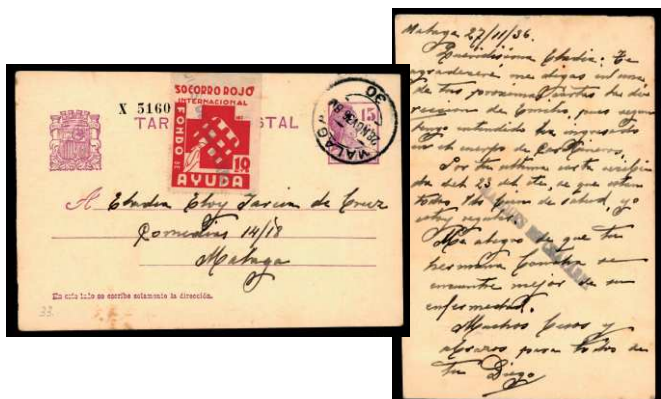 X 5160
TARJETA POSTAL
SOCORRO ROJO
INTERNACIONAL
FONDO DE
10
AYUDA
15
MALAGA
30
A Eladia Eloy García de Cruz
Comedias 14/18
Malaga
En este lado se escribe solamente la dirección.
33.
Malaga 27/11/36.
Queridisima Eladia: Te
agradeceré me digas en una
de tus proximas cartas la di-
reccion de Emilio, pues segun
tengo entendido ha ingresado
en el cuerpo de
Por tu ultima carta recibi-
da del 23 del cte, se que estan
todos Vds buenos de salud, yo
estoy regular.
Me alegro de que tu
hermana se
encuentre mejor de su
enfermedad.
Muchos besos y
abrazos para todos de
tu Diego